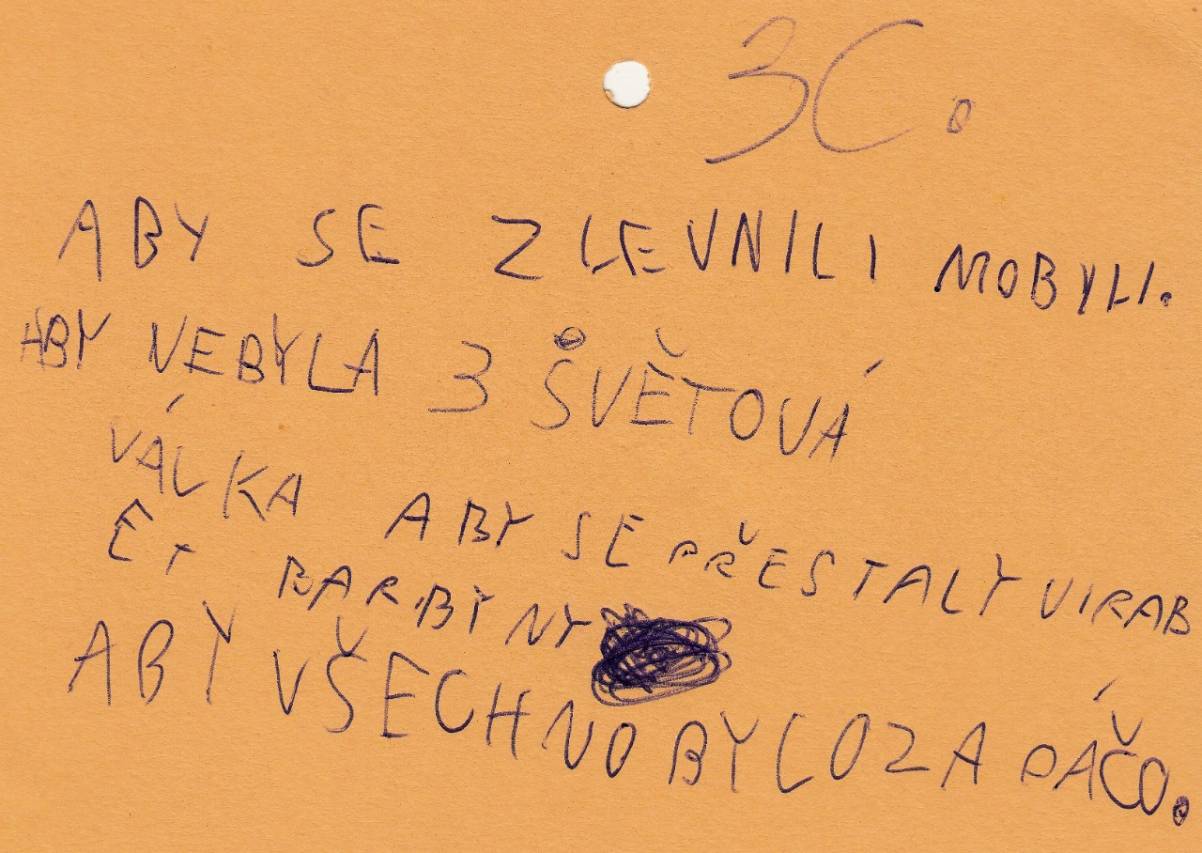 3C.
ABY SE ZLEVNILI MOBYLI.
ABY NEBYLA 3 SVĚTOVÁ
VÁLKA ABY SE PŘESTALY VIRAB
ĚT BARBYNY
ABY VŠECHNO BYLO ZA PÁČO.